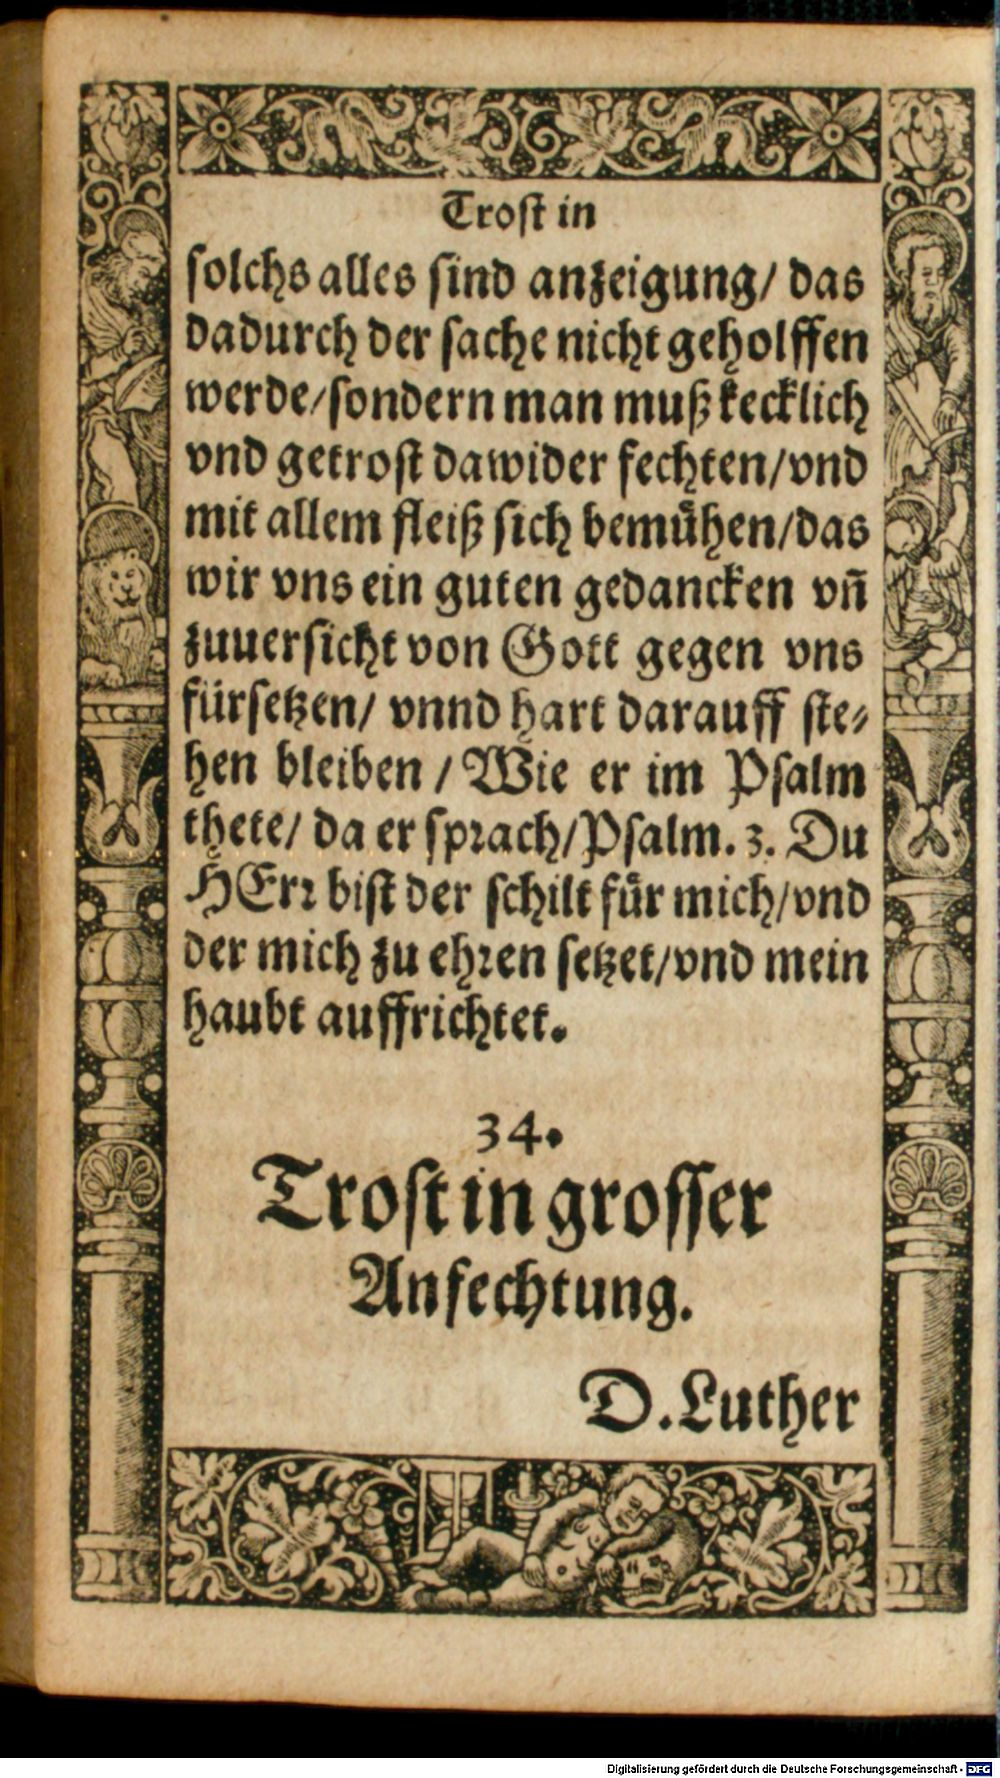 Trost in
solchs alles sind anzeigung/ das
dadurch der sache nicht geholffen
werde/sondern man muß kecklich
vnd getrost dawider fechten/vnd
mit allem fleiß sich bemühen/das
wir vns ein guten gedancken vn̄
zuuersicht von Gott gegen vns
fürsetzen/ vnnd hart darauff ste-
hen bleiben / Wie er im Psalm
thete/ da er sprach/Psalm. 3. Du
HErr bist der schilt für mich/vnd
der mich zu ehren setzet/vnd mein
haubt auffrichtet.
34.
Trost in grosser
Anfechtung.
D. Luther
Digitalisierung gefördert durch die Deutsche Forschungsgemeinschaft - DFG